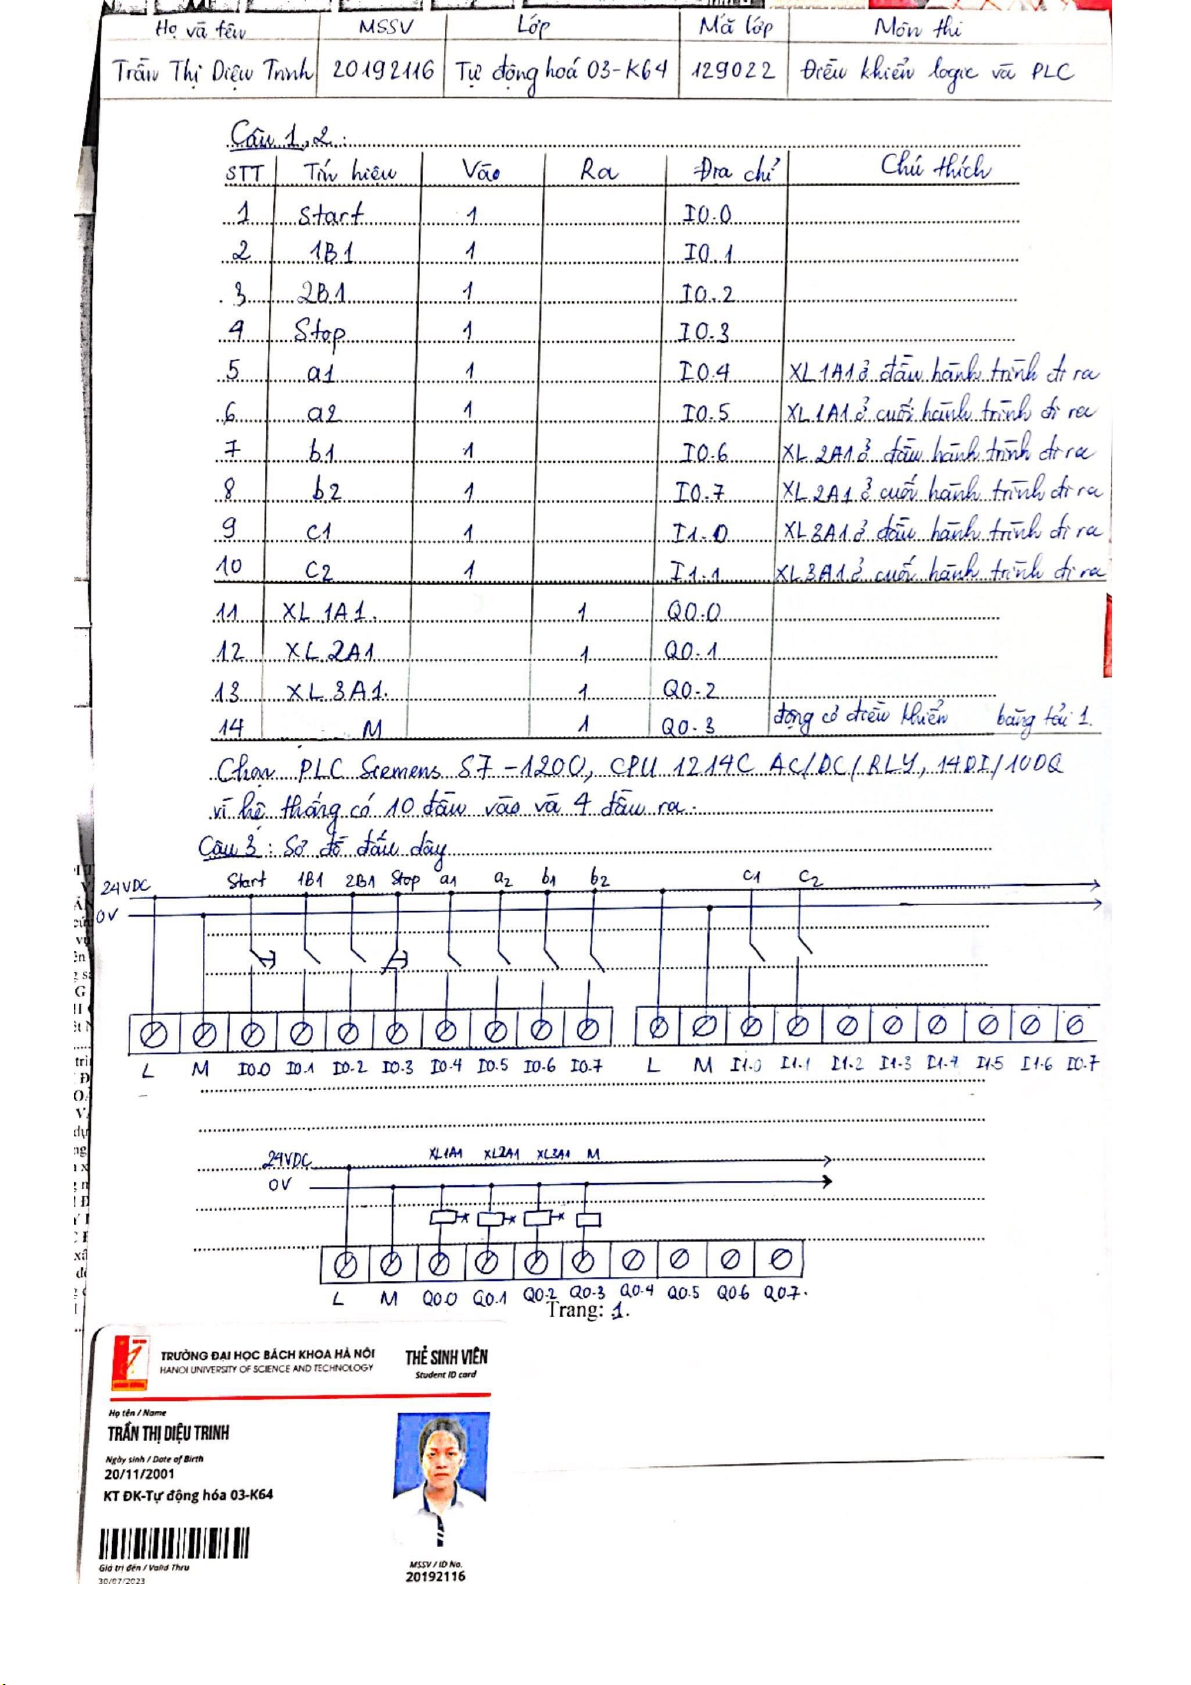 Họ và tên MSSV Lớp Mã lớp Môn thi
Trần Thị Diệu Trinh 20192116 Tự động hoá 03-K64 129022 Điều khiển logic và PLC
Câu 1, 2 :
STT Tín hiệu Vào Ra Địa chỉ Chú thích
1 Start 1 I0.0
2 1B1 1 I0.1
3 2B1 1 I0.2
4 Stop 1 I0.3
5 a1 1 I0.4 XL1A1 ở đầu hành trình đi ra
6 a2 1 I0.5 XL1A1 ở cuối hành trình đi ra
7 b1 1 I0.6 XL 2A1 ở đầu hành trình đi ra
8 b2 1 I0.7 XL2A1 ở cuối hành trình đi ra
9 C1 1 I1.0 XL3A1 ở đầu hành trình đi ra
10 C2 1 I1.1 XL3A1 ở cuối hành trình đi ra
11 XL 1A1. 1 Q0.0
12 XL 2A1 1 Q0.1
13 XL 3A1. 1 Q0.2
14 M 1 Q0.3 động cơ điều khiển băng tải 1.
Chọn PLC Siemens S7-1200, CPU 1214C AC/DC/RLY, 14DI/10DQ
vì hệ thống có 10 đầu vào và 4 đầu ra.
Câu 3 : Sơ đồ đấu dây
24VDC Start 1B1 2B1 Stop a1 a2 b1 b2 C1 C2
0V
L M I0.0 I0.1 I0.2 I0.3 I0.4 I0.5 I0.6 I0.7 L M I1.0 I1.1 I1.2 I1.3 I1.4 I1.5 I1.6 I0.7
24VDC XL1A1 XL2A1 XL3A1 M
0V
L M Q0.0 Q0.1 Q0.2 Q0.3 Q0.4 Q0.5 Q0.6 Q0.7.
Trang: 1.
TRƯỜNG ĐẠI HỌC BÁCH KHOA HÀ NỘI THẺ SINH VIÊN
HANOI UNIVERSITY OF SCIENCE AND TECHNOLOGY Student ID card
Họ tên / Name
TRẦN THỊ DIỆU TRINH
Ngày sinh / Date of Birth
20/11/2001
KT ĐK-Tự động hóa 03-K64
Giá trị đến / Valid Thru MSSV / ID No.
30/07/2023 20192116